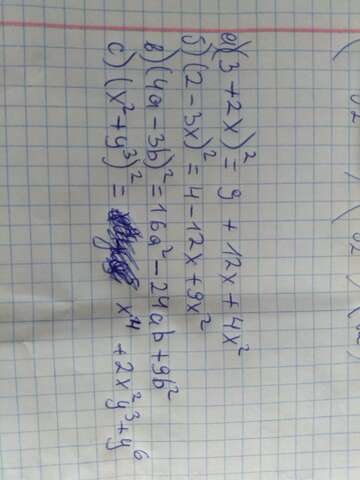 а) (3 + 2x)² = 9 + 12x + 4x²
б) (2 - 3x)² = 4 - 12x + 9x²
в) (4a - 3b)² = 16a² - 24ab + 9b²
с) (x² + y³)² = x⁴ + 2x²y³ + y⁶